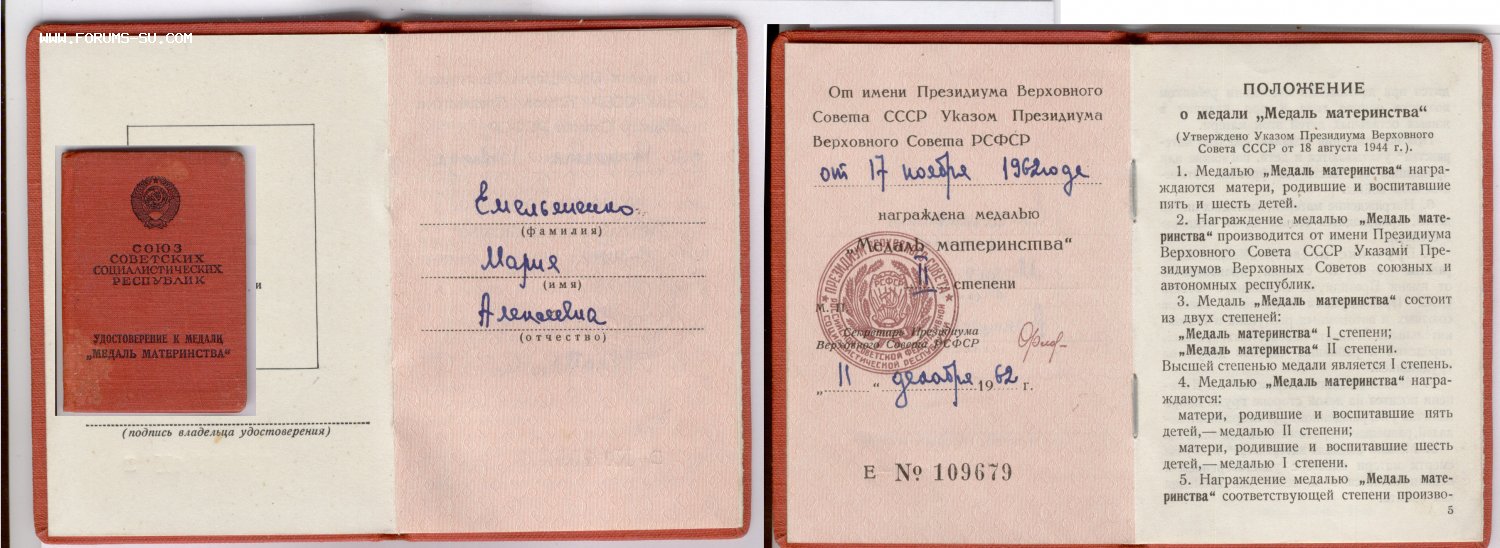 WWW.FORUMS-SU.COM
СОЮЗ
СОВЕТСКИХ
СОЦИАЛИСТИЧЕСКИХ
РЕСПУБЛИК
УДОСТОВЕРЕНИЕ К МЕДАЛИ
„МЕДАЛЬ МАТЕРИНСТВА“
(подпись владельца удостоверения)
Емельяненко
(фамилия)
Мария
(имя)
Алексеевна
(отчество)
От имени Президиума Верховного
Совета СССР Указом Президиума
Верховного Совета РСФСР
от 17 ноября 1962 года
награждена медалью
„Медаль материнства“
II степени
М. П.
Секретарь Президиума
Верховного Совета РСФСР
„11“ декабря 1962 г.
Е № 109679
ПОЛОЖЕНИЕ
о медали „Медаль материнства“
(Утверждено Указом Президиума Верховного
Совета СССР от 18 августа 1944 г.).
1. Медалью „Медаль материнства“ награ-
ждаются матери, родившие и воспитавшие
пять и шесть детей.
2. Награждение медалью „Медаль мате-
ринства“ производится от имени Президиума
Верховного Совета СССР Указами Пре-
зидиумов Верховных Советов союзных и
автономных республик.
3. Медаль „Медаль материнства“ состоит
из двух степеней:
„Медаль материнства“ I степени;
„Медаль материнства“ II степени.
Высшей степенью медали является I степень.
4. Медалью „Медаль материнства“ награ-
ждаются:
матери, родившие и воспитавшие пять
детей,— медалью II степени;
матери, родившие и воспитавшие шесть
детей,— медалью I степени.
5. Награждение медалью „Медаль мате-
ринства“ соответствующей степени произво-
5